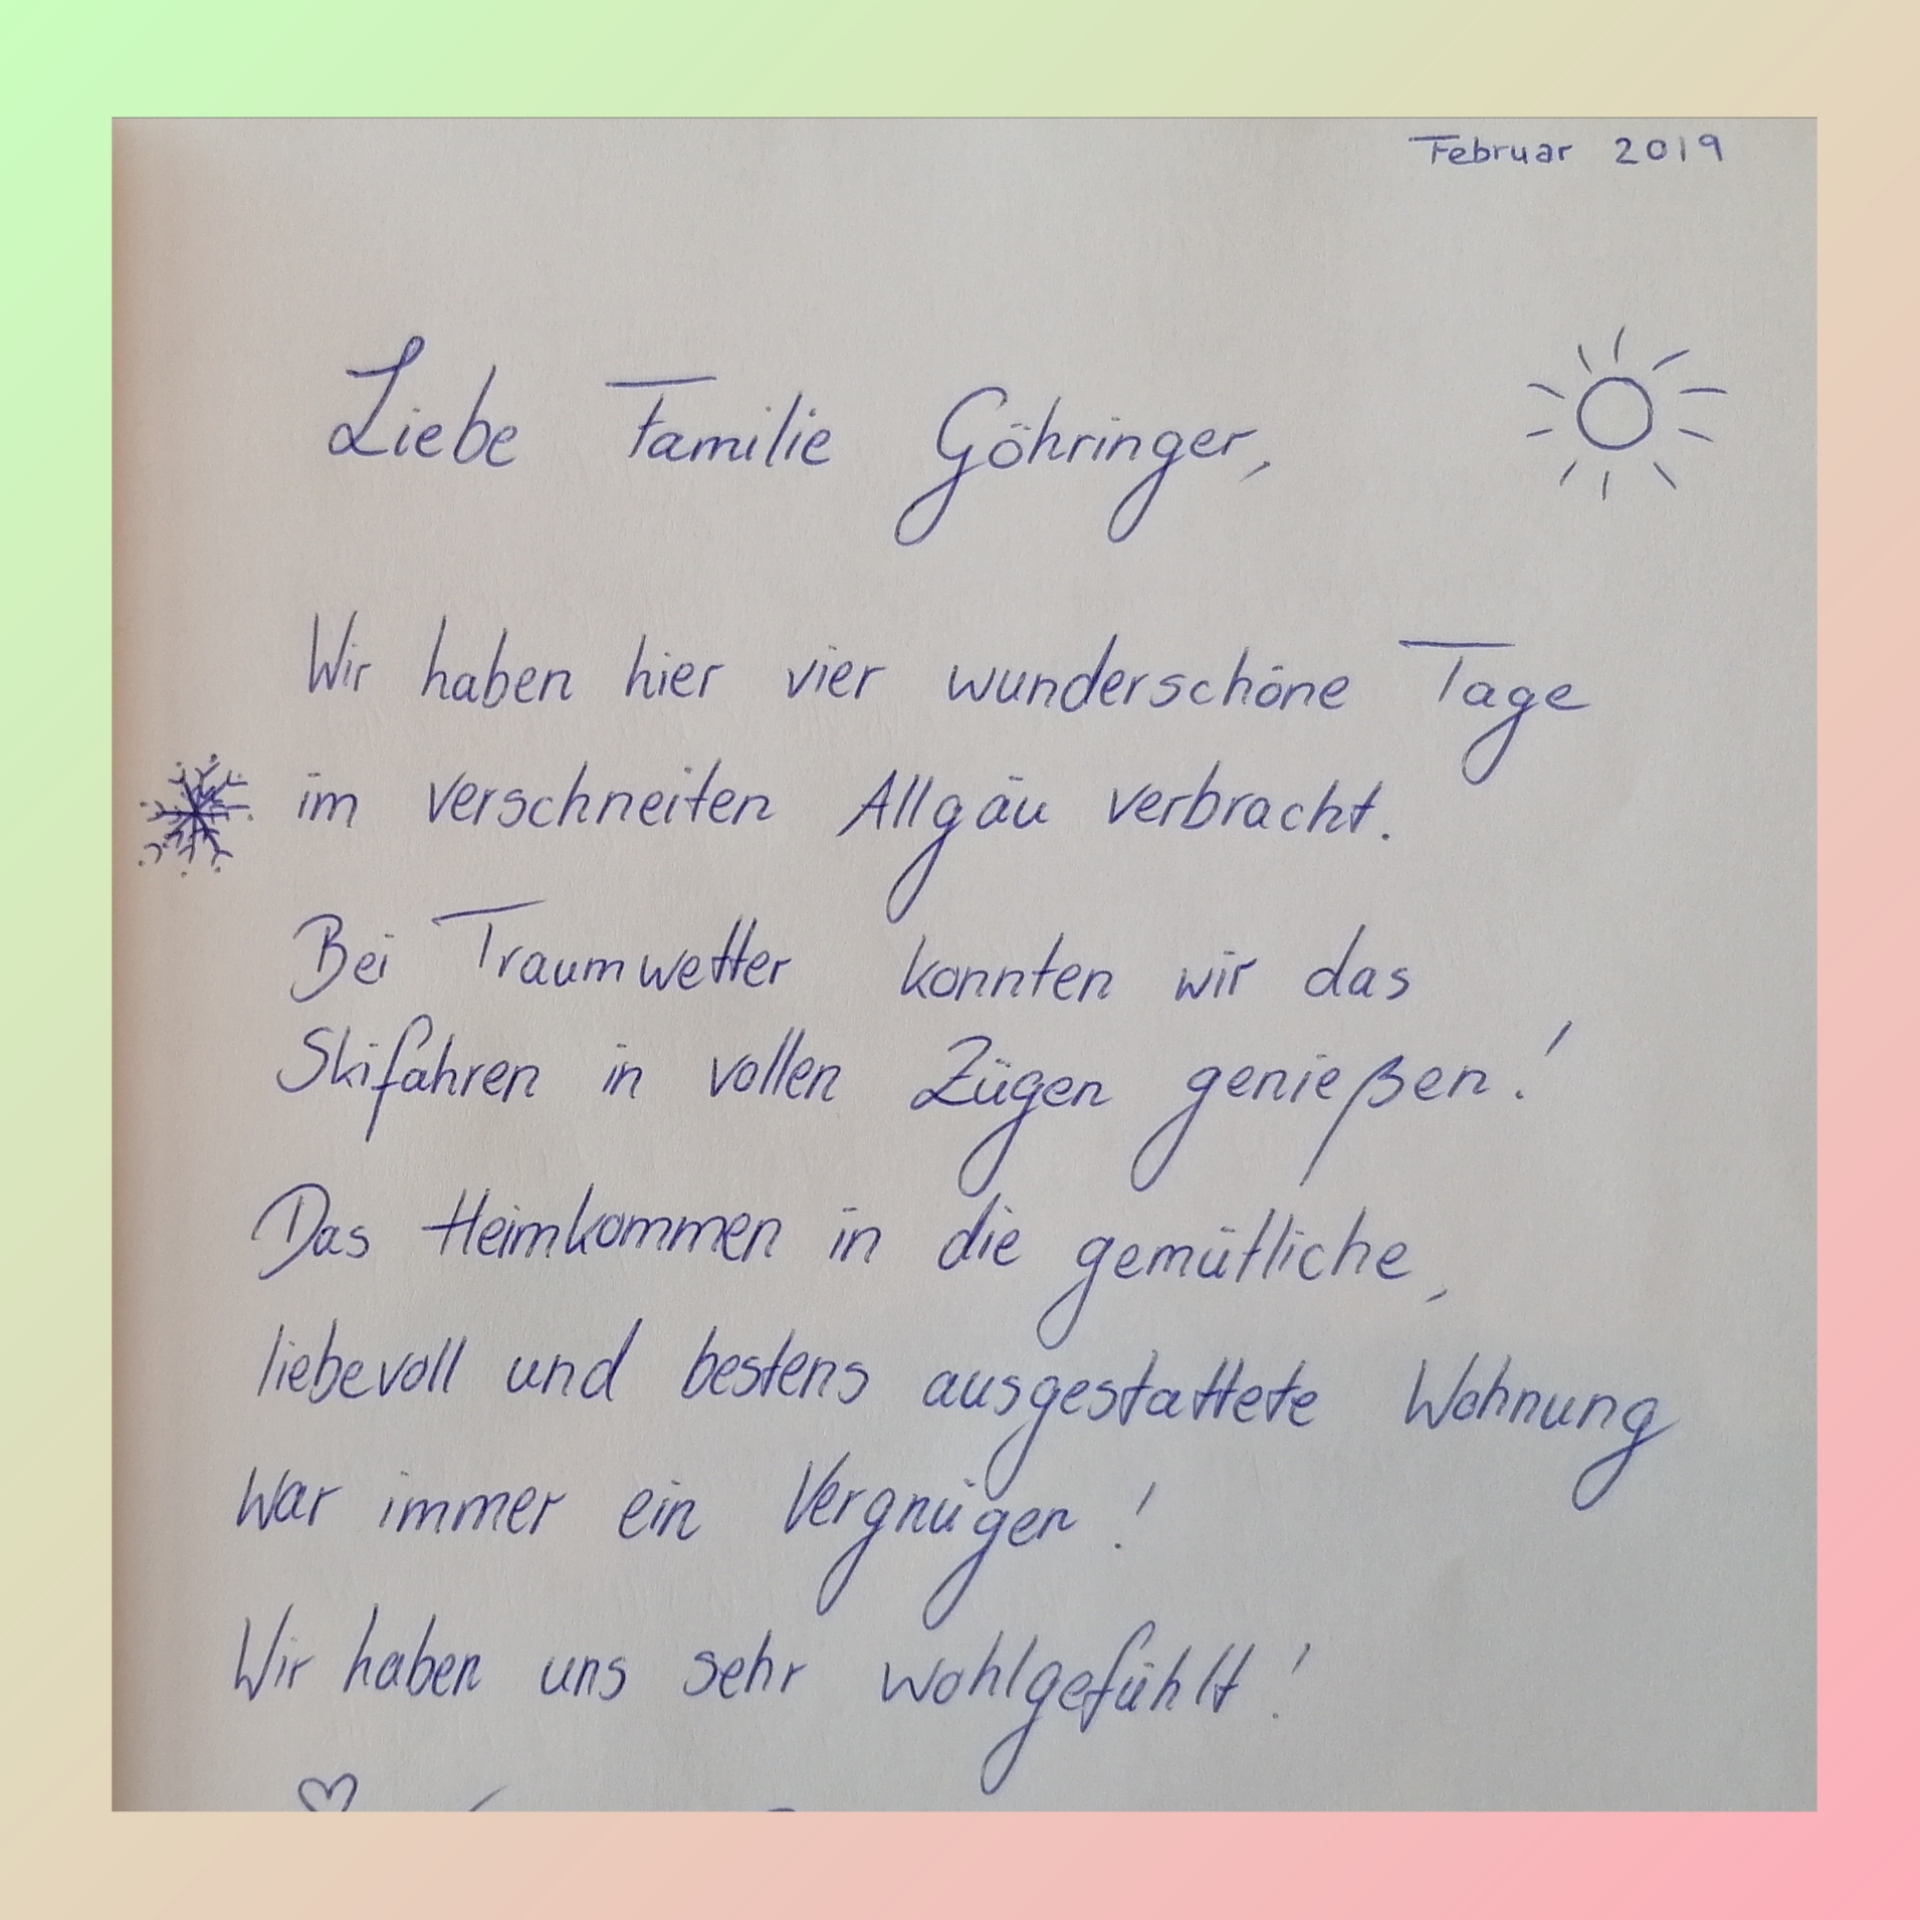 Februar 2019
Liebe Familie Göhringer,
Wir haben hier vier wunderschöne Tage
im verschneiten Allgäu verbracht.
Bei Traumwetter konnten wir das
Skifahren in vollen Zügen genießen!
Das Heimkommen in die gemütliche,
liebevoll und bestens ausgestattete Wohnung
war immer ein Vergnügen!
Wir haben uns sehr wohlgefühlt!